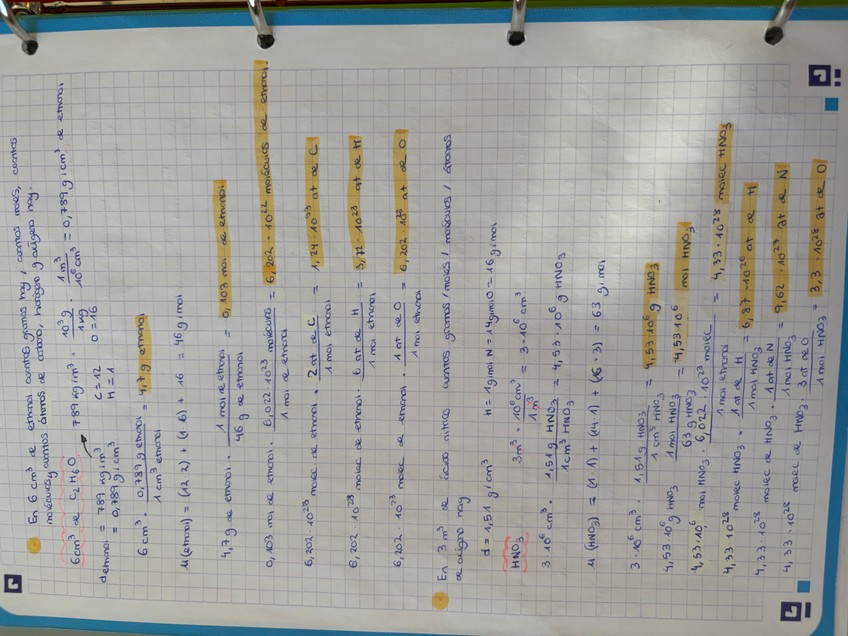 En 6 cm³ de etanol cuantos gramos hay, cuantos moles, cuantas
moléculas y cuantos átomos de carbono, hidrógeno y oxígeno hay.
6cm³ de C2H6O 789 kg/cm³ · 10³g / 1kg · 1m³ / 10⁶cm³ = 0,789 g/cm³ de etanol
detanol = 789 kg/m³ C=12 O=16
= 0,789 g/cm³ H=1
6 cm³ · 0,789 g etanol / 1 cm³ etanol = 4,7 g etanol
M(etanol) = (12·2) + (1·6) + 16 = 46 g/mol
4,7 g de etanol · 1 mol de etanol / 46 g de etanol = 0,103 mol de etanol
0,103 mol de etanol · 6,022·10²³ moléculas / 1 mol de etanol = 6,202·10²² moléculas de etanol.
6,202·10²³ molec de etanol · 2 at de C / 1 mol etanol = 1,24·10²³ at de C
6,202·10²³ molec de etanol · 6 at de H / 1 mol etanol = 3,72·10²³ at de H
6,202·10²³ molec de etanol · 1 at de O / 1 mol etanol = 6,202·10²² at de O
En 3 m³ de ácido nítrico cuantos gramos/moles/moléculas/átomos
de oxígeno hay
d = 1,51 g/cm³ H = 1g/mol N = 14g/mol O = 16g/mol
HNO3 3m³ · 10⁶cm³ / 1m³ = 3·10⁶ cm³
3·10⁶ cm³ · 1,51g HNO3 / 1cm³ HNO3 = 4,53·10⁶ g HNO3
M (HNO3) = (1·1) + (14·1) + (16·3) = 63 g/mol
3·10⁶ cm³ · 1,51g HNO3 / 1 cm³ HNO3 = 4,53·10⁶ g HNO3
4,53·10⁶ g HNO3 · 1 mol HNO3 / 63 g HNO3 = 4,53·10⁶ mol HNO3
4,53·10⁶ mol HNO3 · 6,022·10²³ molec / 1 mol etanol = 4,33·10²⁸ molec HNO3
4,33·10²⁸ molec HNO3 · 1 at de H / 1 mol HNO3 = 6,87·10²⁶ at de H
4,33·10²⁸ molec de HNO3 · 1 at de N / 1 mol HNO3 = 9,62·10²⁷ at de N
4,33·10²⁸ molec de HNO3 · 3 at de O / 1 mol HNO3 = 3,3·10²⁸ at de O